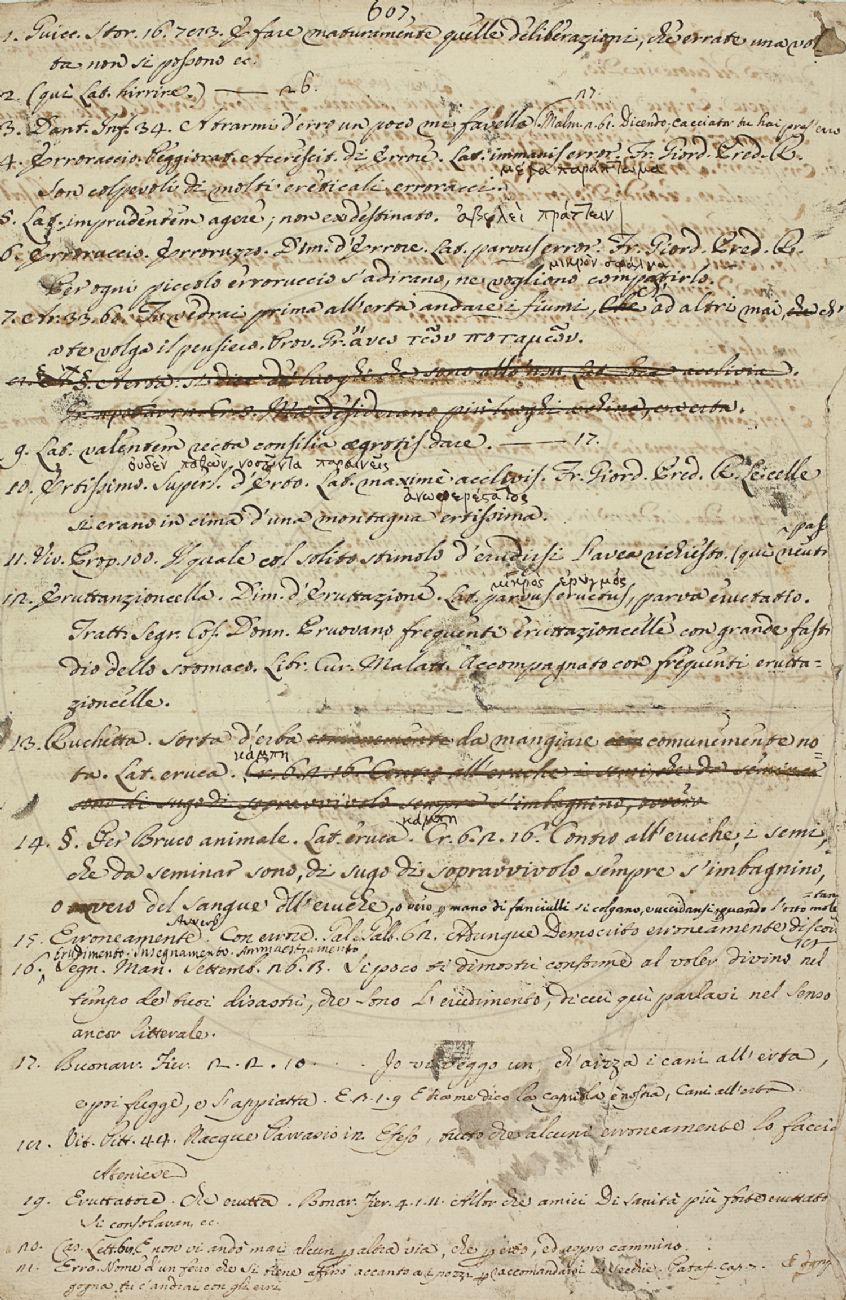 607
1. Guicc. Stor. 16. 7023. E fare maturamente quelle deliberazioni, che errate una vol
ta non si possono ec.
2. (qui Lat. hirrire.) —— 26.
17.
3. Dant. Inf. 34. A trarmi d'erro un poco mi favella (Malm. 2. 61. Dicendo, cacciato tu hai
4. Erroraccio. Peggiorat. e Accrescit. di Errore. Lat. immanis error. Fr. Giord. Pred. R.
μέγα παράπτωμα
Son colpevoli di molti ereticali erroracci.
5. Lat. imprudentem agere; non ex destinato. ἀβουλεὶ πράττειν
6. Erroruccio. Erroruzzo. Dim. d'Errore. Lat. parvus error. Fr. Giord. Pred. R.
μικρὸν σφάλμα
Per ogni piccolo erroruccio s'adirano, ne vogliono compatirlo.
7. Ar. 33. 60. Tu vedrai prima all'erta andare i fiumi, che ad altri mai, che ch'
a te volga il pensiero. Prov. Gr. ἄνω τῶν ποταμῶν.
§. A erta. si dice de' luoghi che sono all' Lat. acclivia.
desiderano più luoghi a chino, ch'a erta.
9. Lat. valentem recta consilia aegrotis dare. —— 17.
οὐδὲν παθὼν νοσοῦντα παραινεῖς
10. Ertissimo. Superl. d'Erto. Lat. maxime acclivis. Fr. Giord. Pred. R. Le celle
ἀνωφερέστατος
si erano in cima d'una montagna ertissima.
pass.
11. Viv. Prop. 100. Il quale col solito stimolo d'erudirsi l'avea richiesto. (qui neutr.
12. Eruttanzioncella. Dim. d'Eruttazione. Lat. parvus eructus, parva eructatio.
μικρὸς ἐρυγμός
Tratt. Segr. Cos. Donn. Pruovano frequenti eruttazioncelle con grande fasti
dio dello stomaco. Libr. Cur. Malatt. Accompagnato con frequenti erutta=
zioncelle.
13. Ruchetta. Sorta d'erba comunemente da mangiare comunemente no=
κάμπη
ta. Lat. eruca. Cr. 6. 2. 16. Contro all'eruche i semi, che da seminar
sono di sugo di sopravvivolo sempre s'imbagnino, ovvero
κάμπη
14. §. Per Bruco animale. Lat. eruca. Cr. 6. 2. 16. Contro all'eruche, i semi,
che da seminar sono, di sugo di sopravvivolo sempre s'imbagnino,
o vero del sangue dell'eruche, o vero p mano di fanciulli si colgano, e uccidansi, quando l'orto
Avverb.
15. Erroneamente. Con errore. Gal. Gall. 62. Adunque Democrito erroneamente discor
Erudimento. Insegnamento. Ammaestramento
16. Segn. Man. Settemb. 26. 3. Si poco ti dimostri conforme al voler divino nel
tempo de' tuoi disastri, che sono l'erudimento, di cui qui parlasi nel senso
ancor litterale.
17. Buonarr. Fier. 2. 2. 10. Io veggo un, ch'aizza i cani all'erta,
e poi fugge, e s'appiatta. E 2. 1. 9 Cani all'erta
18. Vit. Pitt. 44. Nacque Parrasio in Efeso, tutto che alcuni erroneamente lo faccia
Ateniese
19. Eruttatore. Che erutta. Bonar. Fier. 4. 1. 11. Allor che amici Di sanità più forte eruttator
Si consolavan, ec.
20. Car. Lett. non vi andò mai alcun p altra via, che p erto, ed aspro cammino.
21. Erro. Nome d'un ferro che si tiene affisso accanto a i pozzi p accomandarvi le secchie. Pataf. cap. 7.
gogna tu c'andrai con gli erri